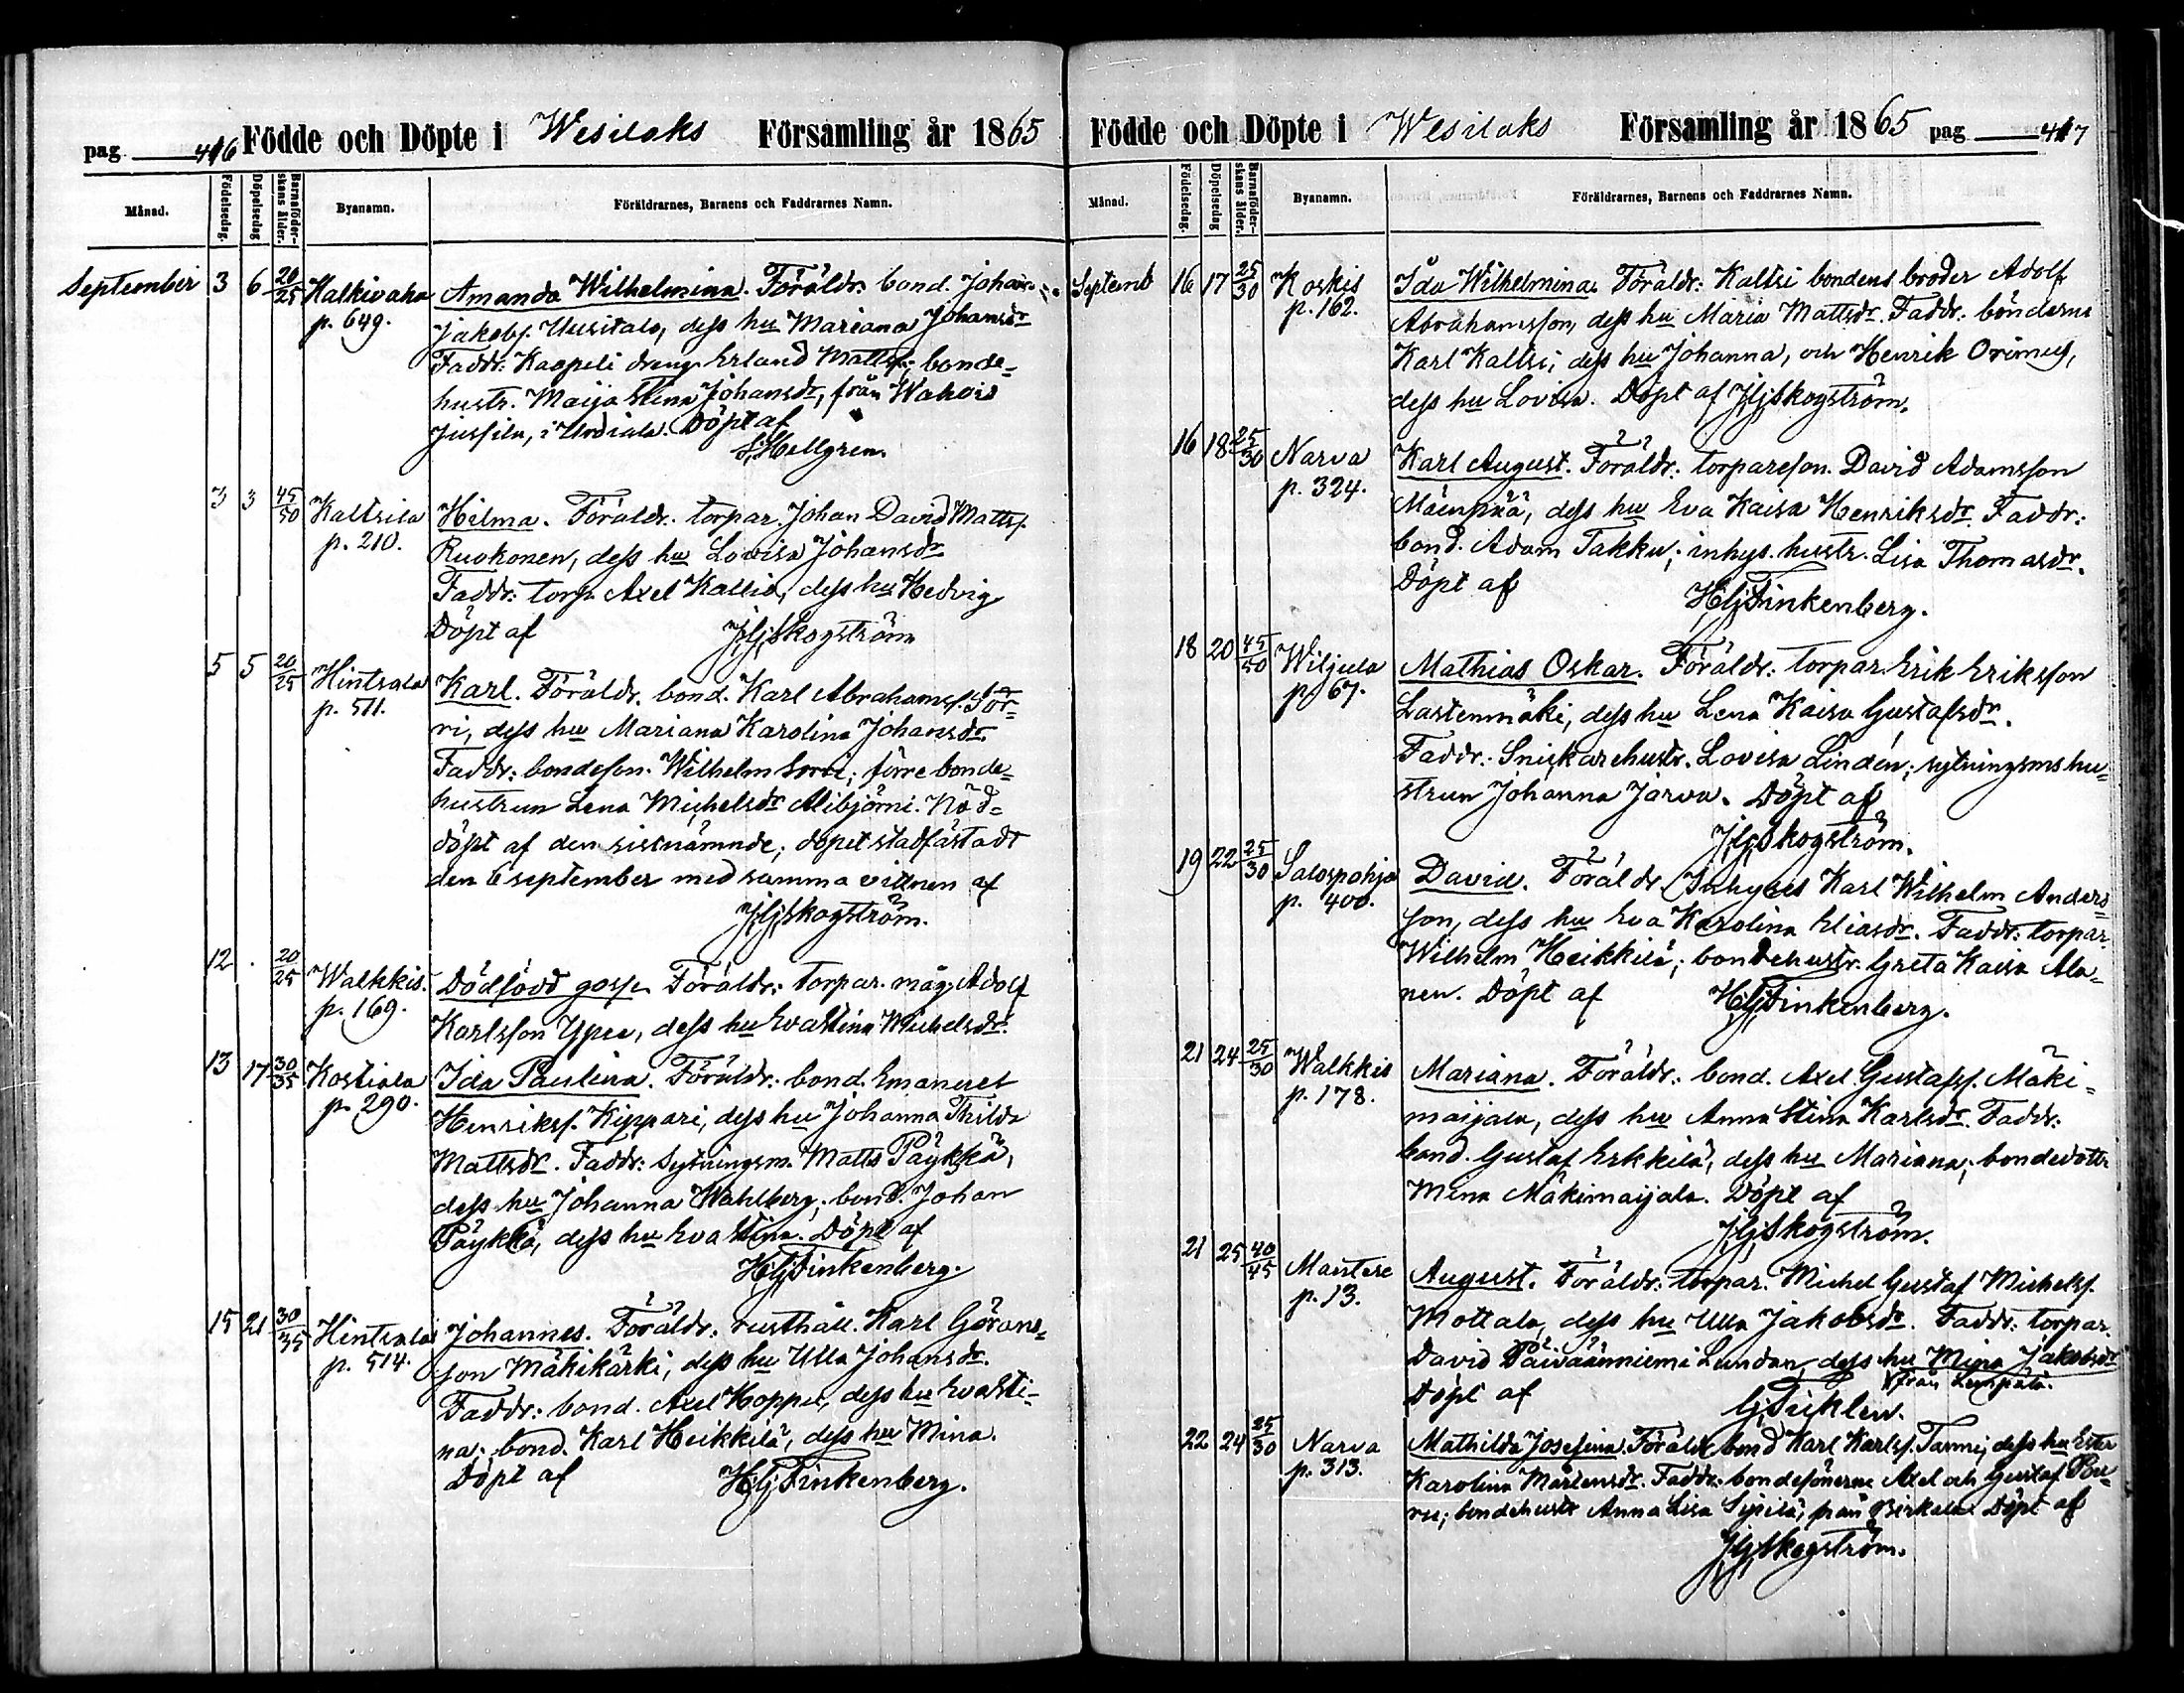 pag 416 Födde och Döpte i Wesilaks Församling år 1865
Månad. Födelsedag. Döpelsedag Barnaföderskans ålder. Byanamn. Föräldrarnes, Barnens och Faddrarnes Namn.
September 3 6 20/25 Halkivaha Amanda Wilhelmina. Föräldr. bond. Johan
p. 649. Jakobs. Uusitalo, dess hu Mariana Johansdr
Faddr: Kaopeli dreng Erland Mattss; bonde-
hustr. Maija Stina Johansdr, från Wahois
Jussila, i Urdiala. Döpt af
Hellgren.
3 3 45/50 Kaltsila Hilma. Föräldr. torpar. Johan David Mattss.
p. 210. Ruokonen, dess hu Lovisa Johansdr
Faddr: torp. Axel Kallio, dess hu Hedvig
Döpt af Skogström
5 5 20/25 Hintsala Karl. Föräldr. bond. Karl Abrahamss. Sor-
p. 511. ri, dess hu Mariana Karolina Johansdr.
Faddr: bondeson. Wilhelm Sorri; förre bonde-
hustrun Lena Michelsdr Alibjörni. Nöd-
döpt af den sistnämnde; dopet stadfästadt
den 6 september med samma vittnen af
Skogström.
12 . 20/25 Walkkis. Dödfödd gosse Föräldr: torpar. måg Adolf
p. 169. Karlsson Ypee, dess hu Eva Stina Michelsdr.
13 17 30/35 Kostiala Ida Paulina. Föräldr: bond. Emanuel
p. 290. Henrikss. Kippari, dess hu Johanna Thilda
Mattsdr. Faddr: Sytningsm. Matts Päykkä,
dess hu Johanna Wahlberg; bond. Johan
Päykkä, dess hu Eva Stina. Döpt af
Finkenberg.
15 21 30/35 Hintsala Johannes. Föräldr: rusthåll. Karl Görans-
p. 514. son Mäkikärki, dess hu Ulla Johansdr.
Faddr: bond. Axel Hoppu, dess hu Eva Sti-
na; bond. Karl Heikkilä, dess hu Mina.
Döpt af Finkenberg.
Födde och Döpte i Wesilaks Församling år 1865 pag 417
Månad. Födelsedag. Döpelsedag Barnaföderskans ålder. Byanamn. Föräldrarnes, Barnens och Faddrarnes Namn.
Septemb 16 17 25/30 Koskis Ida Wilhelmina. Föräldr: Kaltsi bondens broder Adolf
p. 162. Abrahamsson, dess hu Maria Mattsdr. Faddr: bönderne
Karl Kaltsi, dess hu Johanna, och Henrik Orimus,
dess hu Lovisa. Döpt af Skogström.
16 18 25/30 Narva Karl August. Föräldr: torpareson. David Adamsson
p. 324. Mäenpää, dess hu Eva Kaisa Henriksdr. Faddr:
bond. Adam Takku; inhys. hustr. Lisa Thomasdr.
Döpt af Finkenberg.
18 20 45/50 Wiljula Mathias Oskar. Föräldr: torpar. Erik Eriksson
p. 67. Lastenmäki, dess hu Lena Kaisa Gustafsdr.
Faddr: Snickarehustr. Lovisa Lindén; sytningsmshu-
strun Johanna Järva. Döpt af
Skogström.
19 22 25/30 Salospohja David. Föräldr Inhyses Karl Wilhelm Anders-
p. 400. son, dess hu Eva Karolina Eliasdr. Faddr: torpar.
Wilhelm Heikkilä; bondehustr. Greta Kaisa Ala-
nen. Döpt af Finkenberg.
21 24 25/30 Walkkis Mariana. Föräldr: bond. Axel Gustafss. Mäki-
p. 178. maijala, dess hu Anna Stina Karlsdr. Faddr:
bond. Gustaf Erkkilä, dess hu Mariana; bondedottr
Mina Mäkimaijala. Döpt af
Skogström.
21 25 40/45 Mantere August. Föräldr: torpar. Michel Gustaf Michelss.
p. 13. Mottala, dess hu Ulla Jakobsdr. Faddr: torpar.
David Päivääniemi Lundan, dess hu Mina Jakobsdr
från Lempälä.
Döpt af
22 24 25/30 Narva Mathilda Josefina. Föräldr bond Karl Karlss. Tanni, dess hu Ester
p. 313. Karolina Mårtensdr. Faddr: bondesönerne Axel och Gustaf Pu-
ru; bondehustr Anna Lisa Sipilä, från Birkala. Döpt af
Skogström.